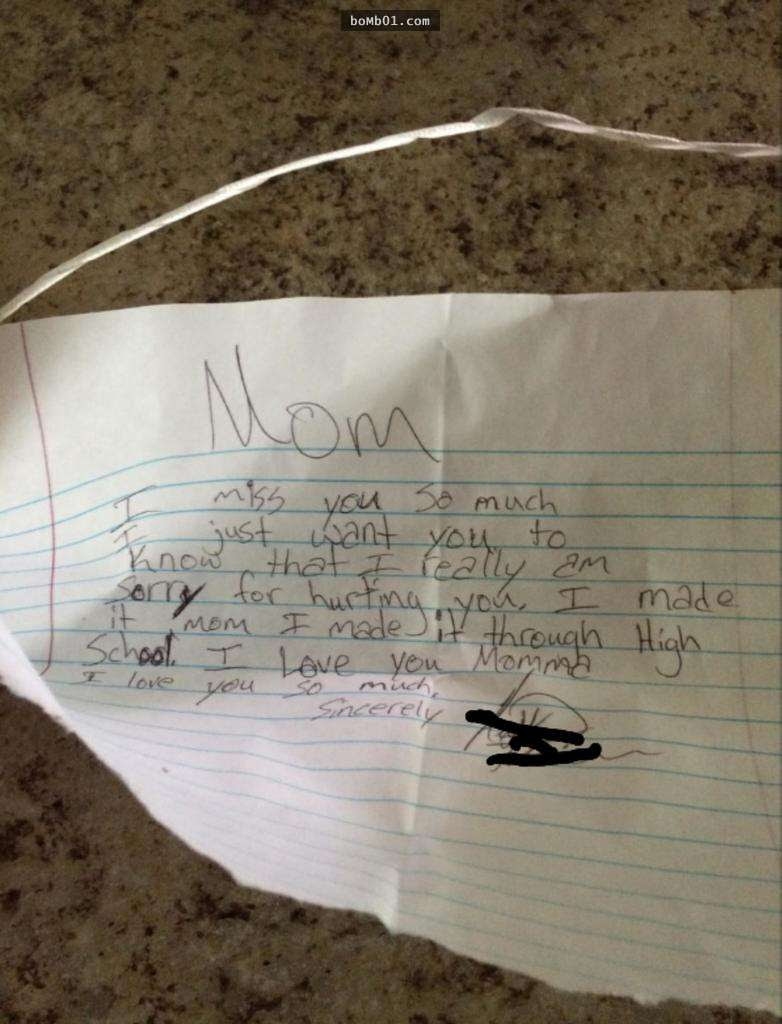 boMb01.com
Mom
I miss you so much
I just want you to
Know that I really am
Sorry for hurting you. I made
it mom I made it through High
School. I Love you Momma
I love you so much.
Sincerely